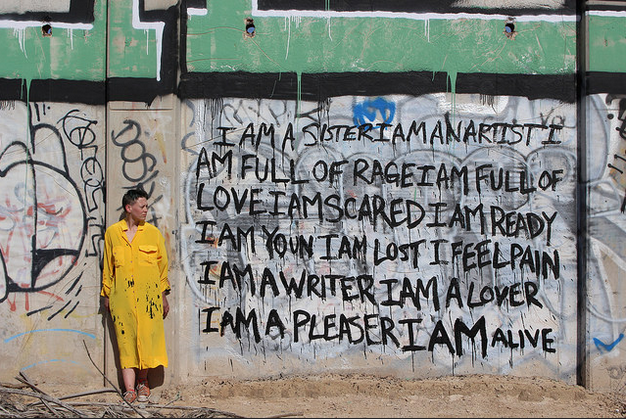 I AM A SISTER I AM AN ARTIST I
AM FULL OF RAGE I AM FULL OF
LOVE I AM SCARED I AM READY
I AM YOUN I AM LOST I FEEL PAIN
I AM A WRITER I AM A LOVER
I AM A PLEASER I AM ALIVE